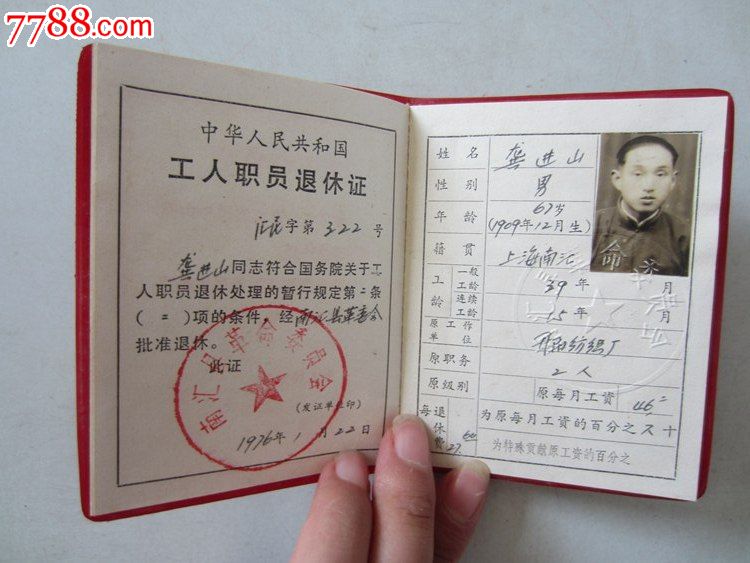 7788.com
中华人民共和国
工人职员退休证
字第322号
龚进山同志符合国务院关于工
人职员退休处理的暂行规定第二条
(二)项的条件，经南汇县革委会
批准退休。
此证
南汇县革命委员会
(发证单位印)
1976年1月22日
姓名 龚进山
性别 男
年龄 67岁
(1909年12月生)
籍贯 上海南汇
工龄 一般工龄 39年 月
连续工龄 15年 月
原工作单位 纺织厂
原职务 工人
原级别 原每月工资 46.
每月退休费 27.60 为原每月工资的百分之六十
为特殊贡献原工资的百分之